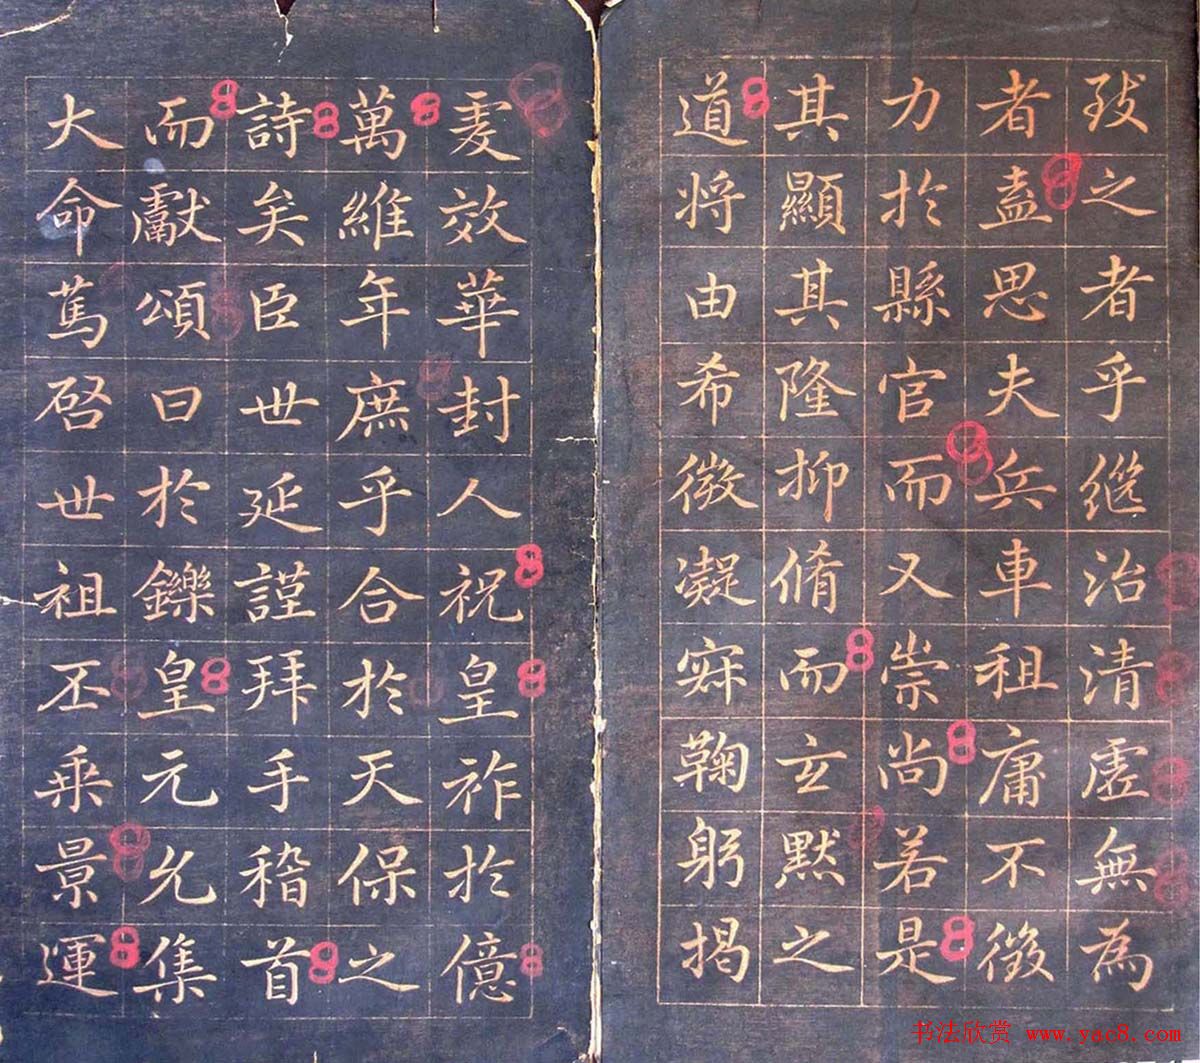 致之者乎繼治清虛無為
者盍思夫兵車租庸不徵
力於縣官而又崇尚若是
其顯其隆抑脩而玄默之
道將由希微凝寂鞠躬揭
虔效華封人祝皇祚於億
萬維年庶乎合於天保之
詩矣臣世延謹拜手稽首
而獻頌曰於鑠皇元允集
大命篤啓世祖丕乘景運
书法欣赏 www.yac8.com